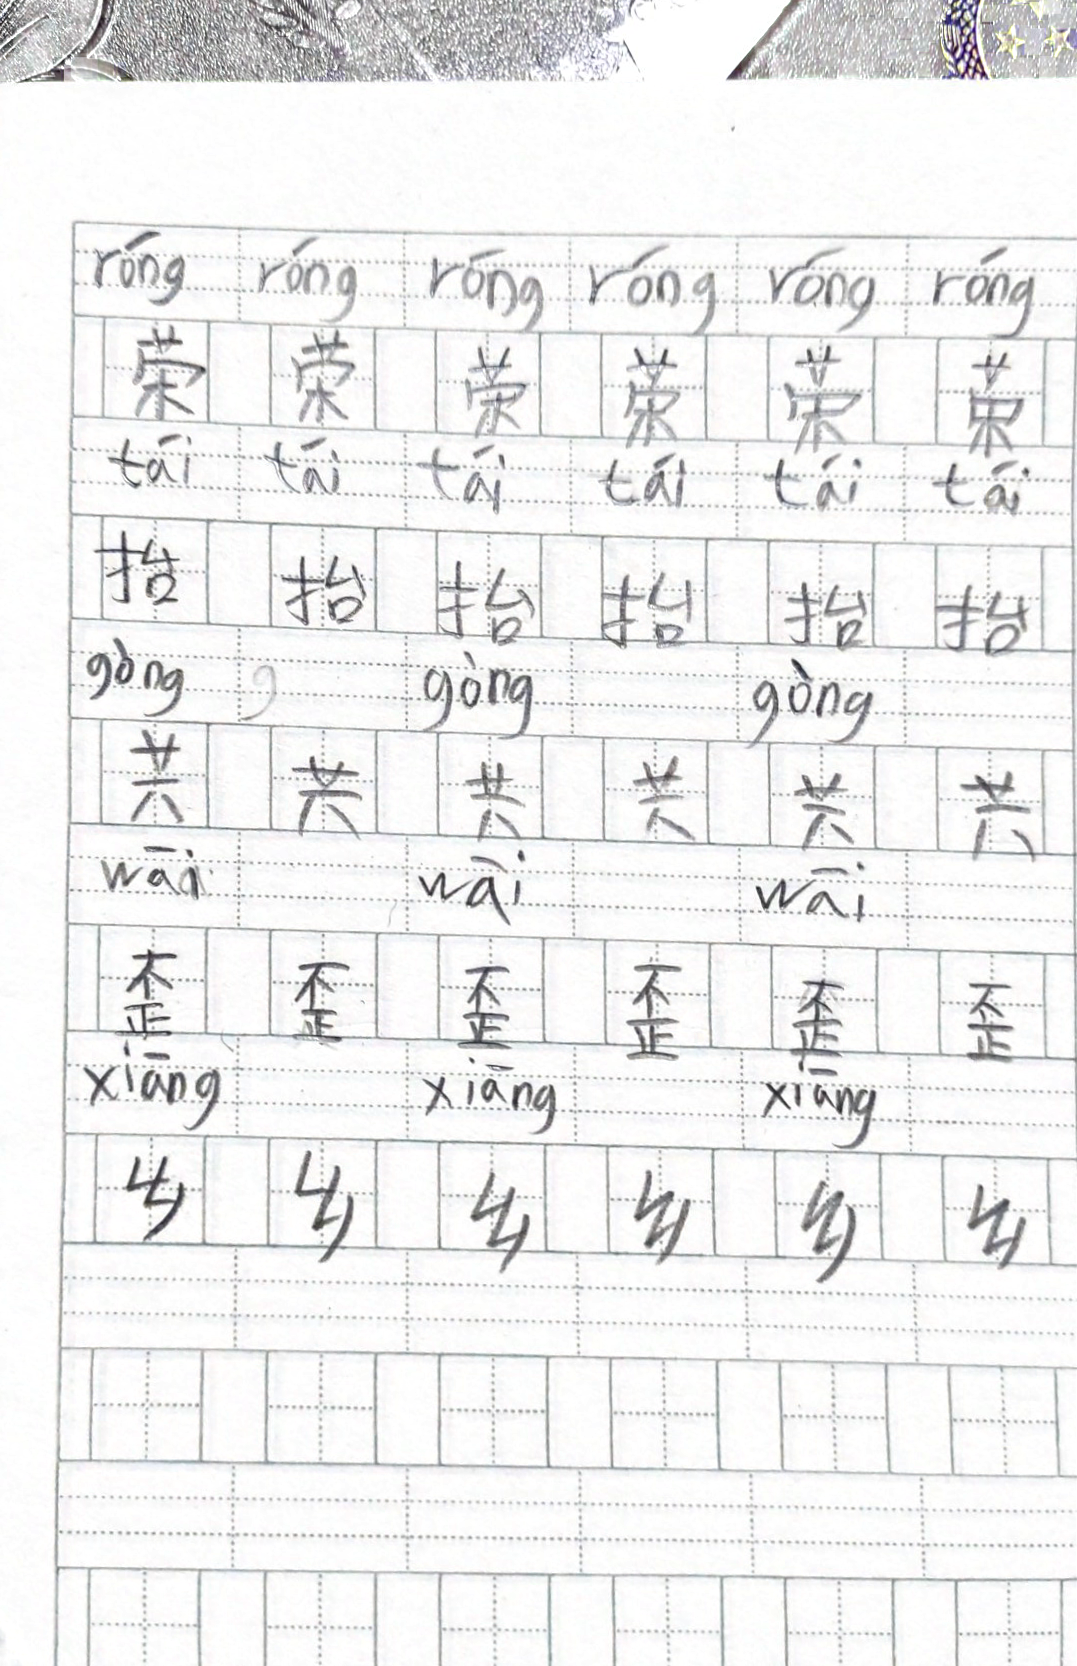 róng róng róng róng róng róng
荣 荣 荣 荣 荣 荣
tái tái tái tái tái tái
抬 抬 抬 抬 抬 抬
gòng g gòng gòng
共 共 共 共 共 共
wāi wāi wāi
歪 歪 歪 歪 歪 歪
xiāng xiāng xiāng
乡 乡 乡 乡 乡 乡